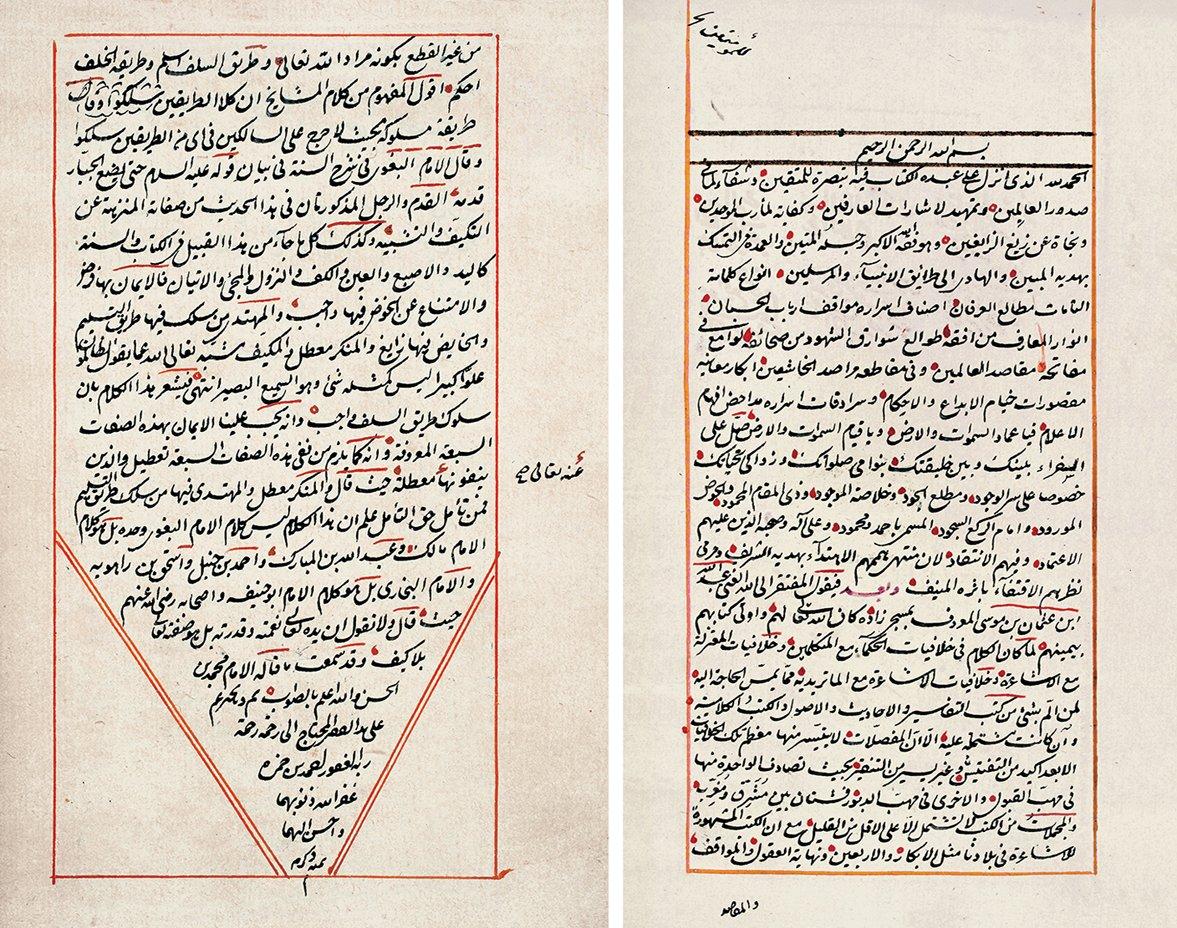 بسم الله الرحمن الرحيم
الحمد لله الذى انزل على عبده الكتاب فيه تبصرة للمتقين وشفاء لما فى
صدور العالمين وتمهيد لاشارات العارفين وكفاية لمأرب الموحدين
ونجاة عن زيغ الزايغين وهو الفقه الاكبر وحبله المتين والعمدة فى التمسك
بهديه المبين والهادى الى طرائق الانبياء والمرسلين انواع كلماته
التامات مطالع العرفان اصناف اسراره مواقف ارباب الحسان
انوار المعارف من افقه طوالع شوارق الشهود من صحائفه لوامع فى
مفاتحه مقاصد العالمين وفى مقاطعه مراصد الخاشعين ابكار معانيه
مقصورات خيام الابداع والاحكام وسرادقات اسراره مداحض افهام
الاعلام فيا عماد السموات والارض ويا قيام السموات والارض صل على
السفراء بينك وبين خليقتك بنوامى صلواتك وزواكى تحياتك
خصوصا على سر الوجود ومطلع الجود وخلاصة الموجود وذى المقام المحمود والحوض
المورود وامام الركع السجود المسمى باحمد ومحمود وعلى آله وصحبه الذين عليهم
الاعتماد وفيهم الانتقاد لان منتهى هممهم الاهتداء بهديه الشريف ومرمى
نظرهم الاقتفاء باثره المنيف وبعد فيقول المفتقر الى الله الغنى عبد الله
ابن عثمان بن موسى المعروف بمسجى زاده كان الله تعالى لهم واوتى كتابهم
بيمينهم لما كان الكلام فى خلافيات الحكماء مع المتكلمين وخلافيات المعتزلة
مع الاشاعرة وخلافيات الاشاعرة مع الماتريدية مما يمس الحاجة اليه
لمن الم بشئ من كتب التفاسير والاحاديث والاصول والكتب الكلامية
وان كانت مشتملة عليه الا ان المفصلات لا يتيسر منها معظم تلك الخلافيات
الا بعد اكيد من التفتيش وغير يسير من التنقير بحيث تصادف الواحدة منها
فى مهب القبول والاخرى فى مهب الدبور فشتان بين مشرق ومغرب
والمجملات من الكتب لا تشتمل الا على الاقل من القليل مع ان الكتب المشهورة
للاشاعرة فى بلادنا مثل الابكار والاربعين ونهاية العقول والمواقف
والمقاصد
من غير القطع بكونه مراد الله تعالى وطريق السلف اسلم وطريقة الخلف
احكم اقول المفهوم من كلام المشايخ ان كلا الطريقين
طريقة مسلوكة بحيث لا حرج على السالكين فى اى من الطريقين سلكوا
وقال الامام البغوى فى شرح السنة فى بيان قوله عليه السلام حتى يضع الجبار
قدمه القدم والرجل المذكورتان فى هذا الحديث من صفاته المنزهة عن
التكيف والتشبيه وكذلك كل ما جاء من هذا القبيل فى الكتاب والسنة
كاليد والاصبع والعين والكف والنزول والمجئ والاتيان فالايمان بها فرض
والامتناع عن الخوض فيها واجب والمهتدى من سلك فيها طريق التسليم
والخايض فيها زايغ والمنكر معطل والمكيف مشبه تعالى الله عما يقول الظالمون
علوا كبيرا ليس كمثله شئ وهو السميع البصير انتهى فيشعر هذا الكلام بان
سلوك طريق السلف واجب وانه يجب علينا الايمان بهذه الصفات
السبعة المعروفة وانه كما يلزم من نفى هذه الصفات السبعة تعطيل والذين
ينفونها معطلة حيث قال والمنكر معطل والمهتدى فيها من سلك طريق التسليم
عنه تعالى صح
فمن تأمل حق التأمل علم ان هذا الكلام ليس كلام الامام البغوى وحده بل هو كلام
الامام مالك وعبد الله بن المبارك واحمد بن حنبل واسحق بن راهويه
والامام البخارى بل هو كلام الامام ابو حنيفه واصحابه رضى الله عنهم
حيث قال ولا نقول ان يده تعالى نعمته وقدرته بل هو صفته تعالى
بلا كيف وقد سمعت ما قاله الامام محمد بن
الحسن والله اعلم بالصواب تم وبختم
على يد الفقير المحتاج الى رحمة
ربه الغفور محمد بن حمزه
غفر الله ذنوبهما
واحسن اليهما
بمنه وكرمه
م